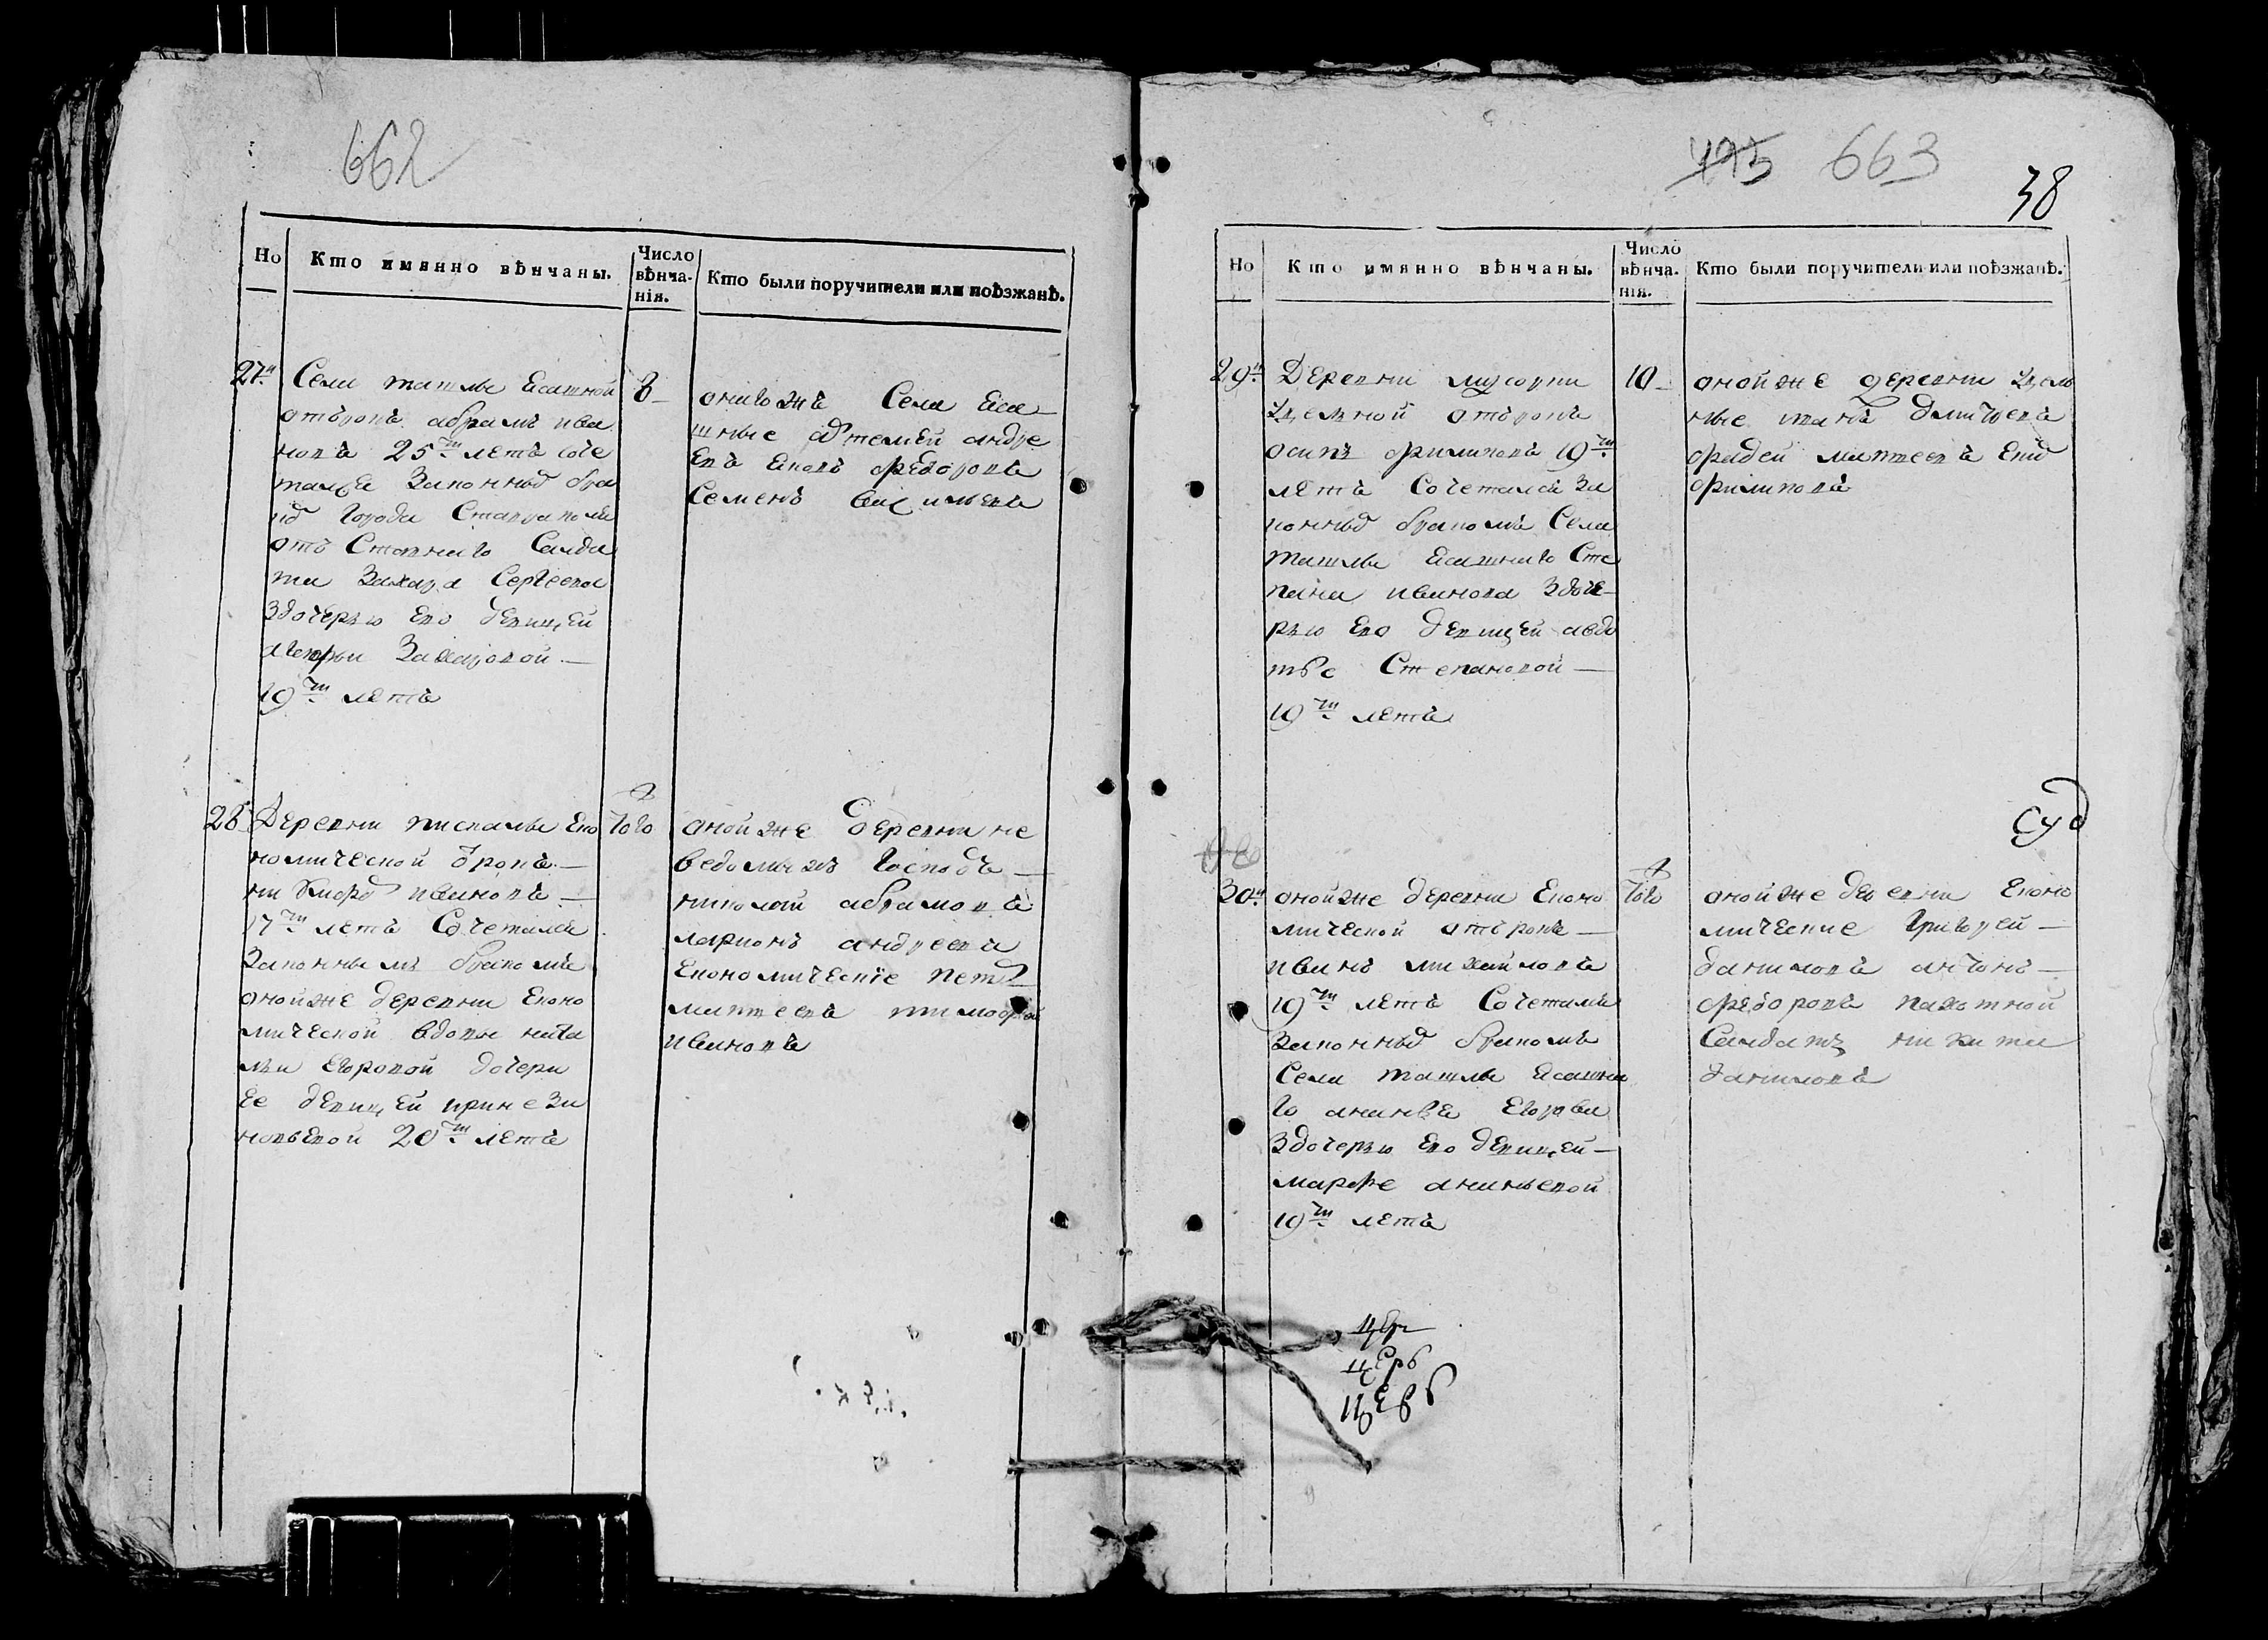 662
Но
Кто имянно вѣнчаны.
Число вѣнча-нія.
Кто были поручители или поѣзжанѣ.
27й
Села ташлы Ясашной
отърокъ абрамъ ива
новъ 25ти летъ соче
талъся Законныд бра
города Ставраполя
отъ Ставнаго Салда
та Захара Сергеева
Здочерью Ево девицей
Захаровой —
19ти летъ
8
оногожъ Села Яса
шные Артемей андре
евъ федоровъ
Семенъ Васильевъ
28
Деревни пискалы Еко
номической отрокъ —
ивановъ —
17ти летъ Сочетался
Законнымъ бракомъ
оной же деревни Еконо
мической вдовы ната
льи Егоровой дочери
Ее девицей ирине Зи
новьевой 20ти летъ
того
оной же деревни не
ведомыхъ Господъ —
николай абрамовъ
ларионъ андреевъ
Економическіе петръ
матвеевъ тимофей
ивановъ
495 663
38
Но
Кто имянно вѣнчаны.
Число вѣнча-нія.
Кто были поручители или поѣзжанѣ.
29й
Деревни мусорки
Удельной отърокъ
осипъ филиповъ 19ти
летъ Сочетался За
конныд бракомъ Села
ташлы Ясашнаго Сте
пана иванова Здоче
рью Ево девицей авдо
тье Степановой —
19ти летъ
10
оной же деревни Удель
ные иванъ дмитревъ
фадей матвеевъ
филиповъ
30й
оной же деревни Еконо
мической отърокъ —
иванъ михайловъ
19ти летъ Сочетался
Законныд бракомъ
Села ташлы Ясашна
го ананье Егорова
Здочерью Ево девицей —
марфе ананьевой
19ти летъ
того
Суд
оной же деревни Еконо
мическіе Григорей —
даниловъ антонъ —
федоровъ пахотной
Салдатъ никита
даниловъ
цер
церб